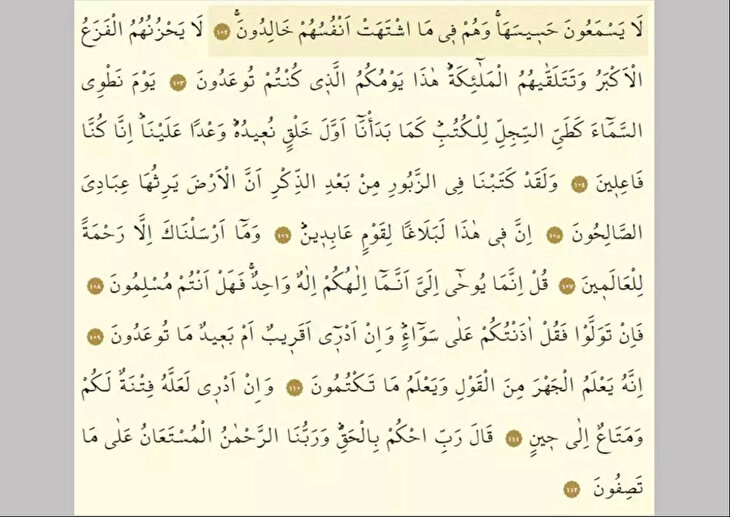 لَا يَسْمَعُونَ حَسٖيسَهَاۚ وَهُمْ فٖي مَا اشْتَهَتْ اَنْفُسُهُمْ خَالِدُونَۚ ١٠٢ لَا يَحْزُنُهُمُ الْفَزَعُ
الْاَكْبَرُ وَتَتَلَقّٰيهُمُ الْمَلٰٓئِكَةُؕ هٰذَا يَوْمُكُمُ الَّذٖي كُنْتُمْ تُوعَدُونَ ١٠٣ يَوْمَ نَطْوِي
السَّمَٓاءَ كَطَيِّ السِّجِلِّ لِلْكُتُبِؕ كَمَا بَدَأْنَٓا اَوَّلَ خَلْقٍ نُعٖيدُهُؕ وَعْدًا عَلَيْنَاؕ اِنَّا كُنَّا
فَاعِلٖينَ ١٠٤ وَلَقَدْ كَتَبْنَا فِي الزَّبُورِ مِنْ بَعْدِ الذِّكْرِ اَنَّ الْاَرْضَ يَرِثُهَا عِبَادِيَ
الصَّالِحُونَ ١٠٥ اِنَّ فٖي هٰذَا لَبَلَاغًا لِقَوْمٍ عَابِدٖينَؕ ١٠٦ وَمَٓا اَرْسَلْنَاكَ اِلَّا رَحْمَةً
لِلْعَالَمٖينَ ١٠٧ قُلْ اِنَّمَا يُوحٰٓى اِلَيَّ اَنَّمَٓا اِلٰهُكُمْ اِلٰهٌ وَاحِدٌۚ فَهَلْ اَنْتُمْ مُسْلِمُونَ ١٠٨
فَاِنْ تَوَلَّوْا فَقُلْ اٰذَنْتُكُمْ عَلٰى سَوَٓاءٍؕ وَاِنْ اَدْرٖٓي اَقَرٖيبٌ اَمْ بَعٖيدٌ مَا تُوعَدُونَ ١٠٩
اِنَّهُ يَعْلَمُ الْجَهْرَ مِنَ الْقَوْلِ وَيَعْلَمُ مَا تَكْتُمُونَ ١١٠ وَاِنْ اَدْرٖي لَعَلَّهُ فِتْنَةٌ لَكُمْ
وَمَتَاعٌ اِلٰى حٖينٍ ١١١ قَالَ رَبِّ احْكُمْ بِالْحَقِّؕ وَرَبُّنَا الرَّحْمٰنُ الْمُسْتَعَانُ عَلٰى مَا
تَصِفُونَ ١١٢